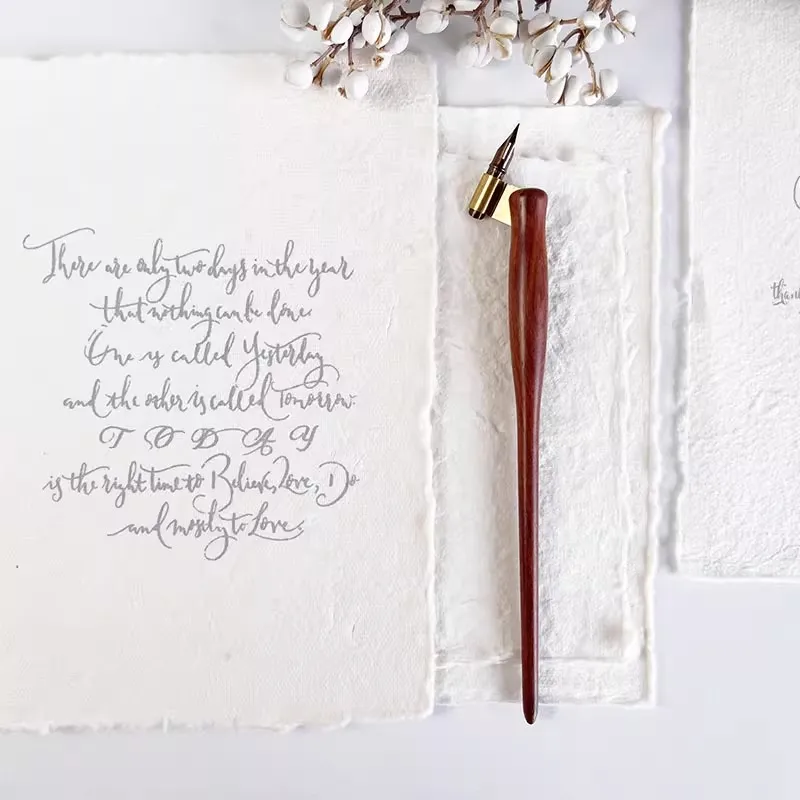 There are only two days in the year
that nothing can be done.
One is called Yesterday
and the other is called Tomorrow.
TODAY
is the right time to Believe, Love, Do
and mostly to Love.